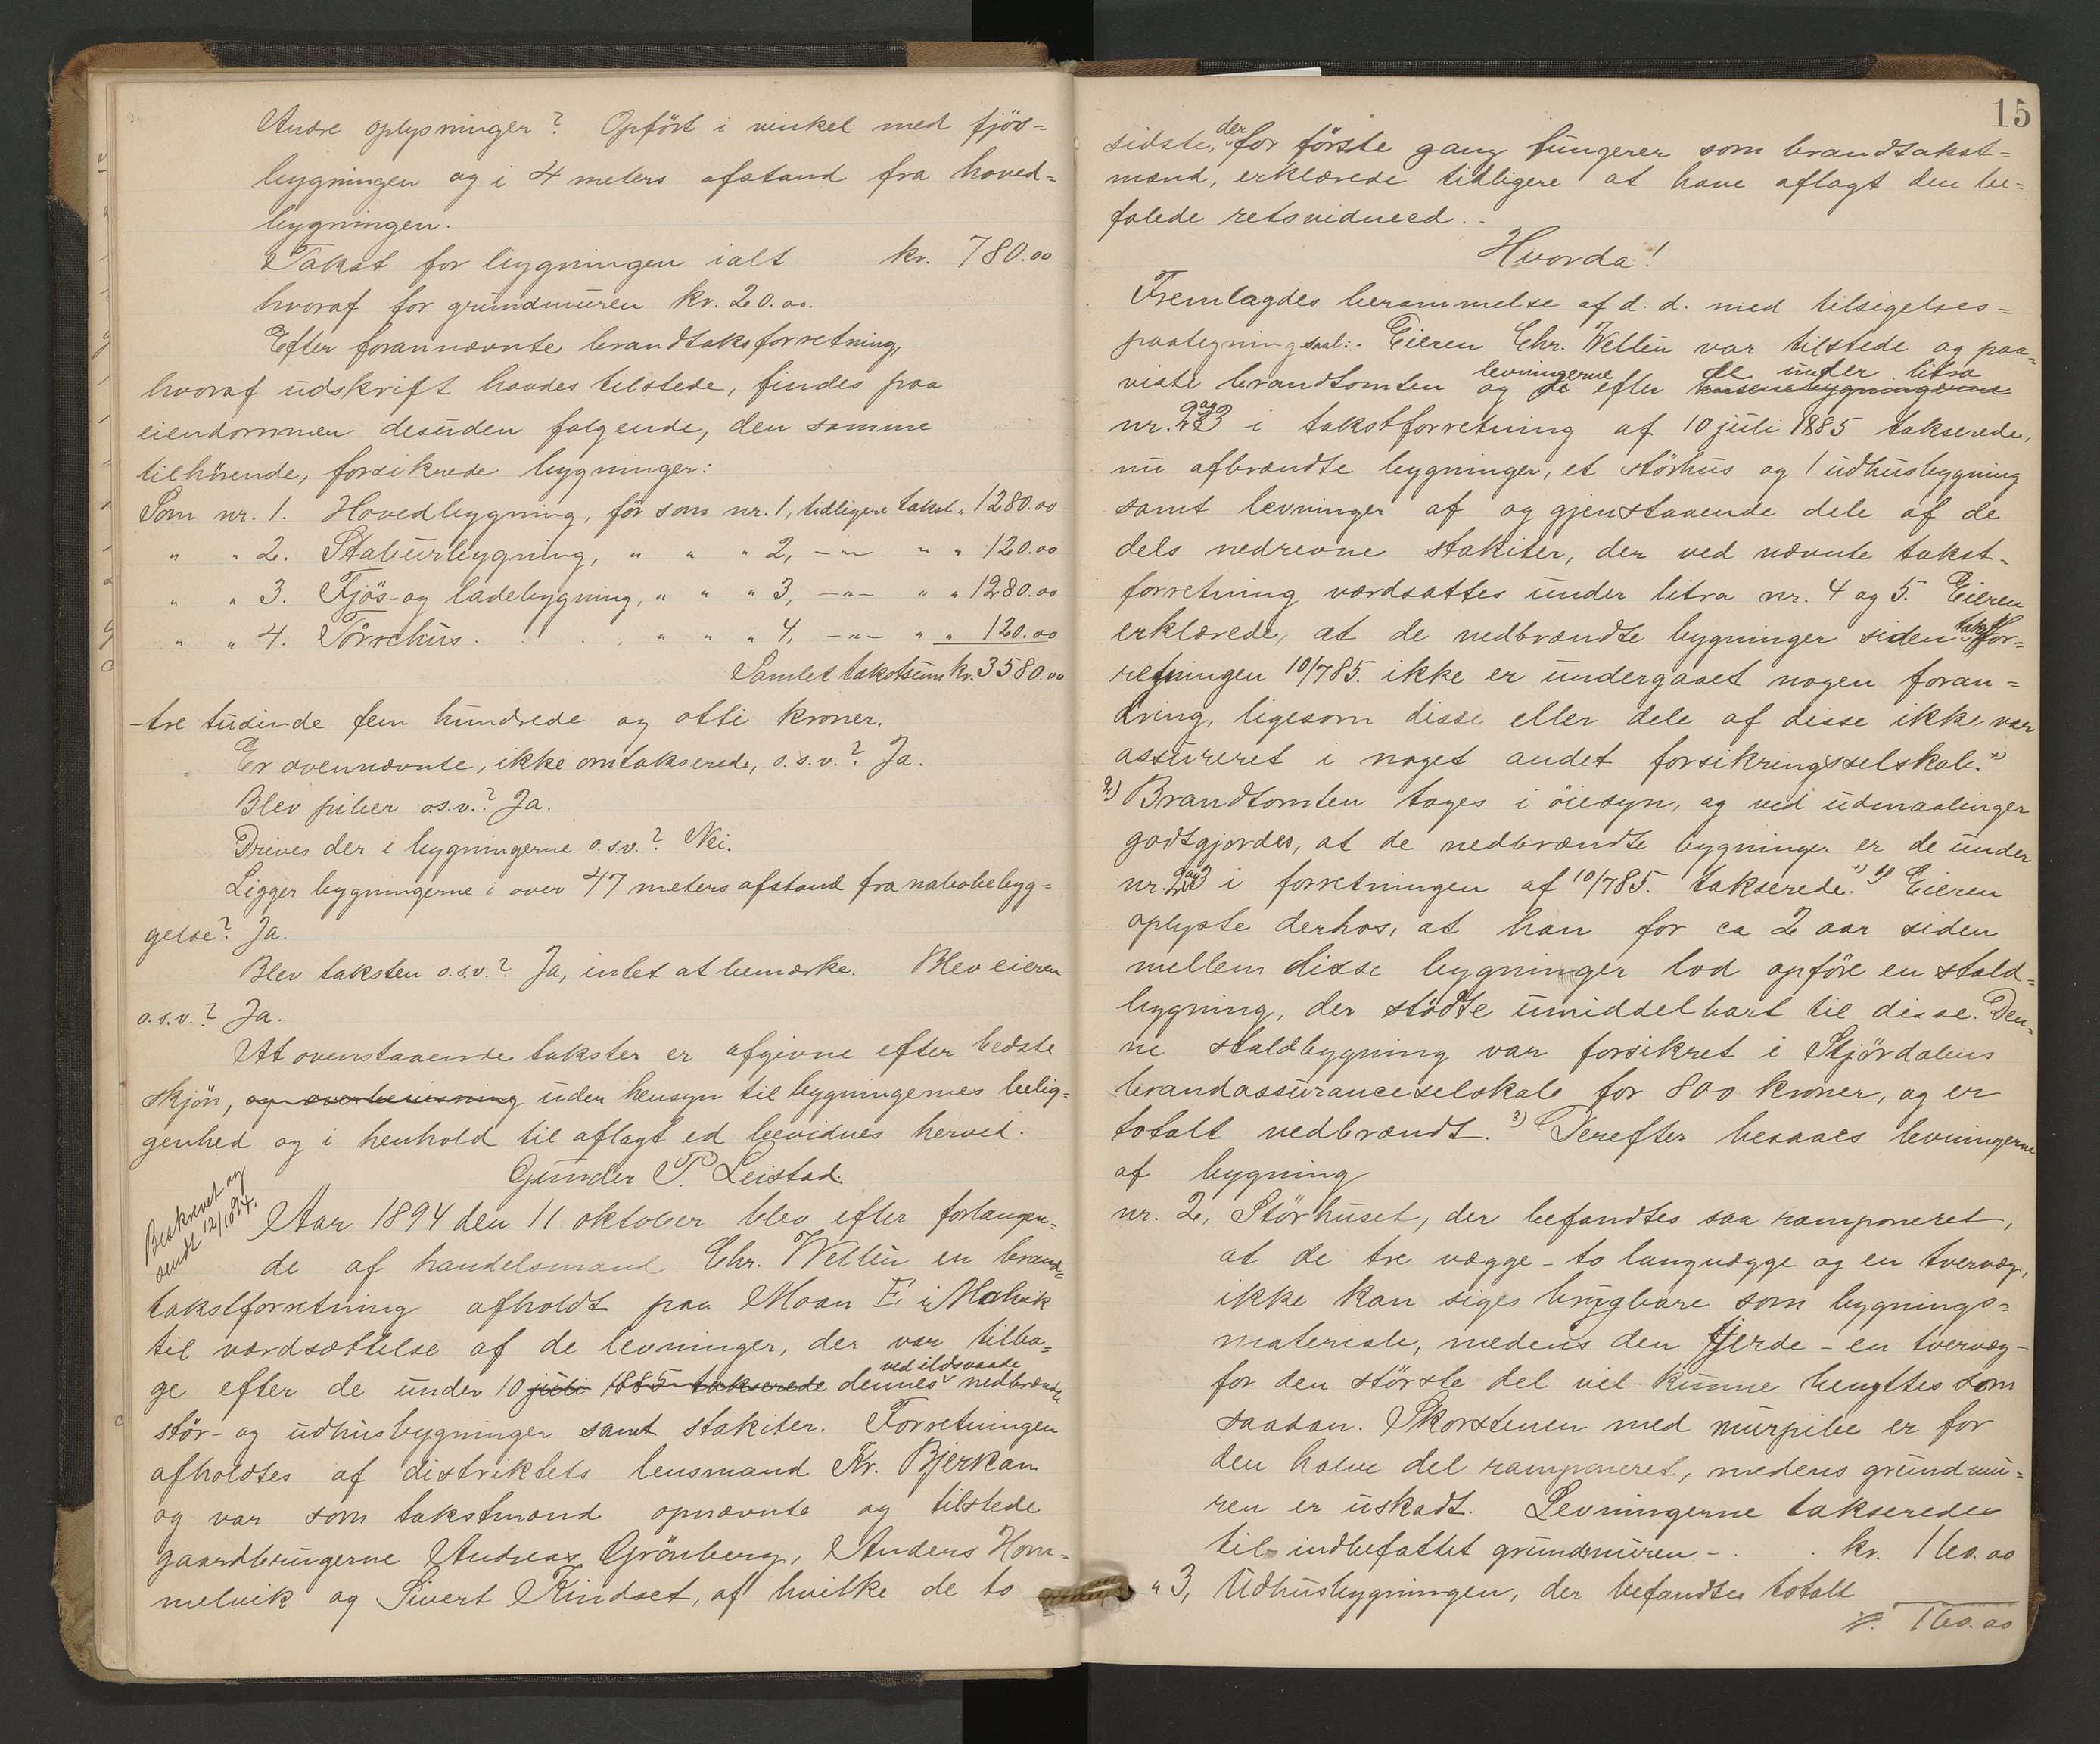 Andre oplysninger? Opført i vinkel med fjös-
bygningen og i 4 meters afstand fra hoved-
bygningen.
Takst for bygningen ialt kr. 780.00
hvoraf for grundmuren kr. 20.00.
Efter forannævnte brandtaksforretning,
hvoraf udskrift havdes tilstede, findes paa
eiendommen desuden følgende, den samme
tilhörende, forsikrede bygninger:
Som nr. 1. Hovedbygning, för som nr. 1, tidligere takst " 1280.00
" " 2. Staburbygning, " " " 2, -"- " " 120.00
" " 3. Fjös- og ladebygning, " " " 3, -"- " " 1280.00
" " 4. Törrehus. . . . " " " 4, -"- " " 120.00
Samlet takstsum kr. 3580.00
- tre tusinde fem hundrede og otti kroner.
Er ovennævnte, ikke omtakserede, o.s.v.? Ja.
Blev piber os.v.? Ja.
Drives der i bygningerne o.s.v.? Nei.
Ligger bygningerne i over 47 meters afstand fra nabobebyg-
gelse? Ja.
Blev taksten o.s.v.? Ja, intet at bemærke. Blev eieren
o.s.v.? Ja.
At ovenstaaende takster er afgivne efter bedste
skjön, uden hensyn til bygningernes belig-
genhed og i henhold til aflagt ed bevidnes herved.
Gunder P. Leistad.
Beskrevet og
sendt 12/10 94.
Aar 1894 den 11 oktober blev efter forlangen-
de af handelsmand Chr. Wellin en brand-
takstforretning afholdt paa Moan E i Malvik
til værdsættelse af de levninger, der var tilba-
ge efter de under 10 juli 1885 takserede dennes ved ildsvaade nedbrændte
stör- og udhusbygninger samt stakiter. Forretningen
afholdtes af distriktets lensmand Kr. Bjerkan
og var som takstmænd opnævnte og tilstede
gaardbrugerne Andreas Grönberg, Anders Hom-
melvik og Sivert Kindset, af hvilke de to
15
sidste, der for förste gang fungerer som brandtakst-
mænd, erklærede tidligere at have aflagt den be-
falede retsvidneed.
Hvorda!
Fremlagdes berammelse af d. d. med tilsigelses-
paategning saal:. Eieren Chr. Wellin var tilstede og paa-
viste brandtomten og levningerne efter de under litra
nr. 2 og 3 i takstforretning af 10 juli 1885 takserede,
nu afbrændte bygninger, et störhus og 1 udhusbygning
samt levninger af og gjenstaaende dele af de
dels nedrevne stakiter, der ved nævnte takst-
forretning værdsattes under litra nr. 4 og 5. Eieren
erklærede, at de nedbrændte bygninger siden takstfor-
retningen 10/7 85. ikke er undergaaet nogen foran-
dring, ligesom disse eller dele af disse ikke var
assureret i noget andet forsikringsselskab. x)
2) Brandtomten toges i öiesyn, og ved udmaalinger
godtgjordes, at de nedbrændte bygninger er de under
nr. 2 og 3 i forretningen af 10/7 85. takserede. x) 1) Eieren
oplyste derhos, at han for ca 2 aar siden
mellem disse bygninger lod opföre en stald-
bygning, der stödte umiddelbart til disse. Den-
ne staldbygning var forsikret i Stjördalens
brandassuranceselskab for 800 kroner, og er
totalt nedbrændt. 3) Derefter besaaes levningerne
af bygning
nr. 2, Störhuset, der befandtes saa ramponeret,
at de tre vægge - to langvægge og en tvervæg,
ikke kan siges brugbare som bygnings-
materiale, medens den fjerde - en tvervæg -
for den störste del vil kunne benyttes som
saadan. Skorstenen med murpibe er for
den halve del ramponeret, medens grundmu-
ren er uskadt. Levningerne takseredes
til indbefattet grundmuren - . . kr. 160.00
" 3, Udhusbygningen, der befandtes totalt
kr. 160.00